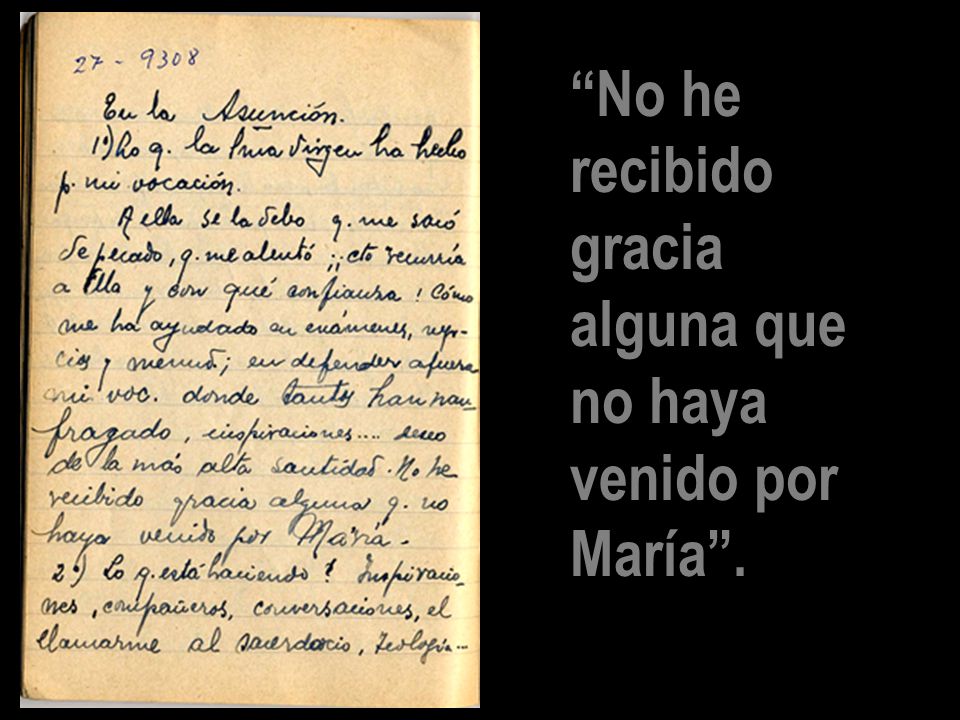 27 - 9308
En la Asunción.
1º) Lo q. la Sma Virgen ha hecho
p. mi vocación.
A ella se la debo q. me sacó
de pecado, q. me alentó ¡¡ cto recurría
a Ella y con qué confianza! Cómo
me ha ayudado en exámenes, nego-
cios y ; en defender afuera
mi voc. donde tantos han nau-
fragado, inspiraciones.... deseo
de la más alta santidad. No he
recibido gracia alguna q. no
haya venido por María.
2º) Lo q. está haciendo? Inspiracio-
nes, compañeros, conversaciones, el
llamarme al sacerdocio, Teología...
“No he
recibido
gracia
alguna que
no haya
venido por
María”.